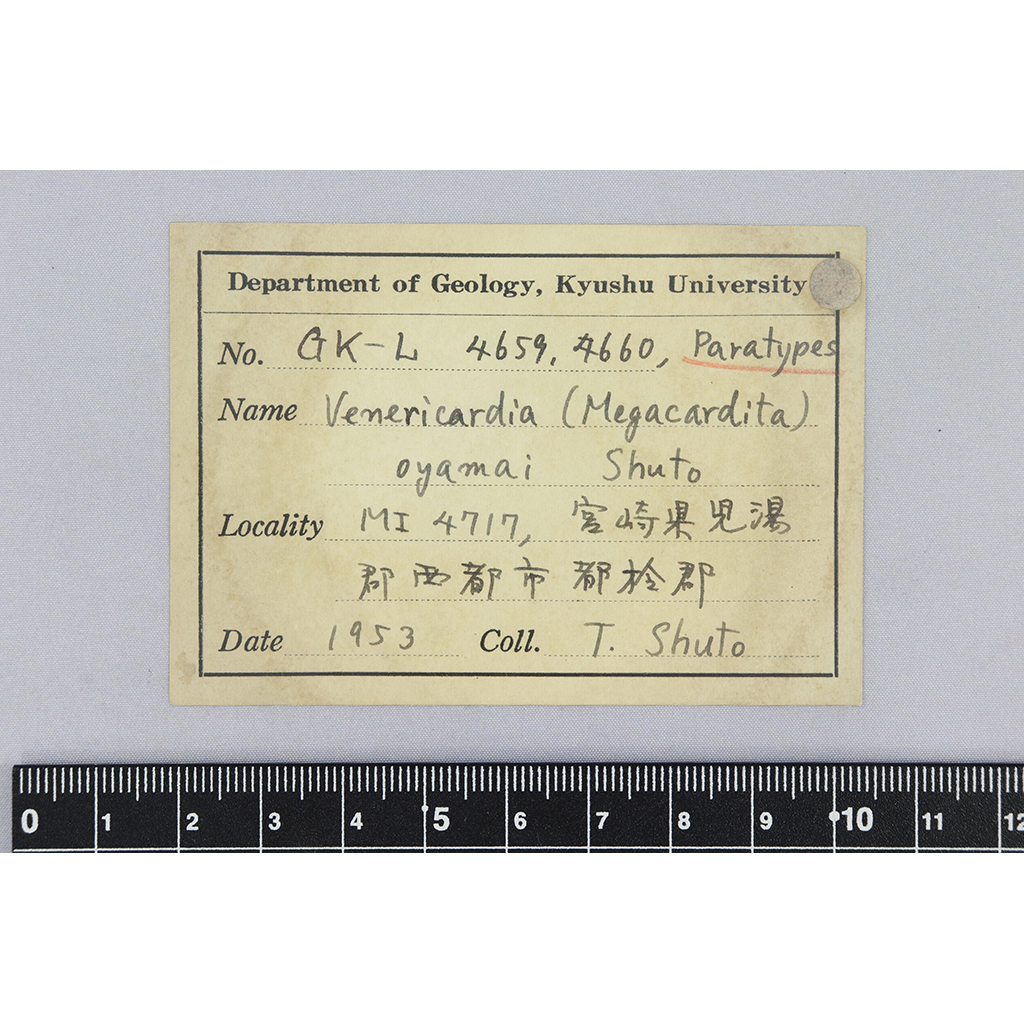 Department of Geology, Kyushu University
No. GK-L 4659, 4660, Paratypes
Name Venericardia (Megacardita)
oyamai Shuto
Locality MI 4717, 宮崎県児湯
郡西都市都於郡
Date 1953 Coll. T. Shuto
0 1 2 3 4 5 6 7 8 9 10 11 12